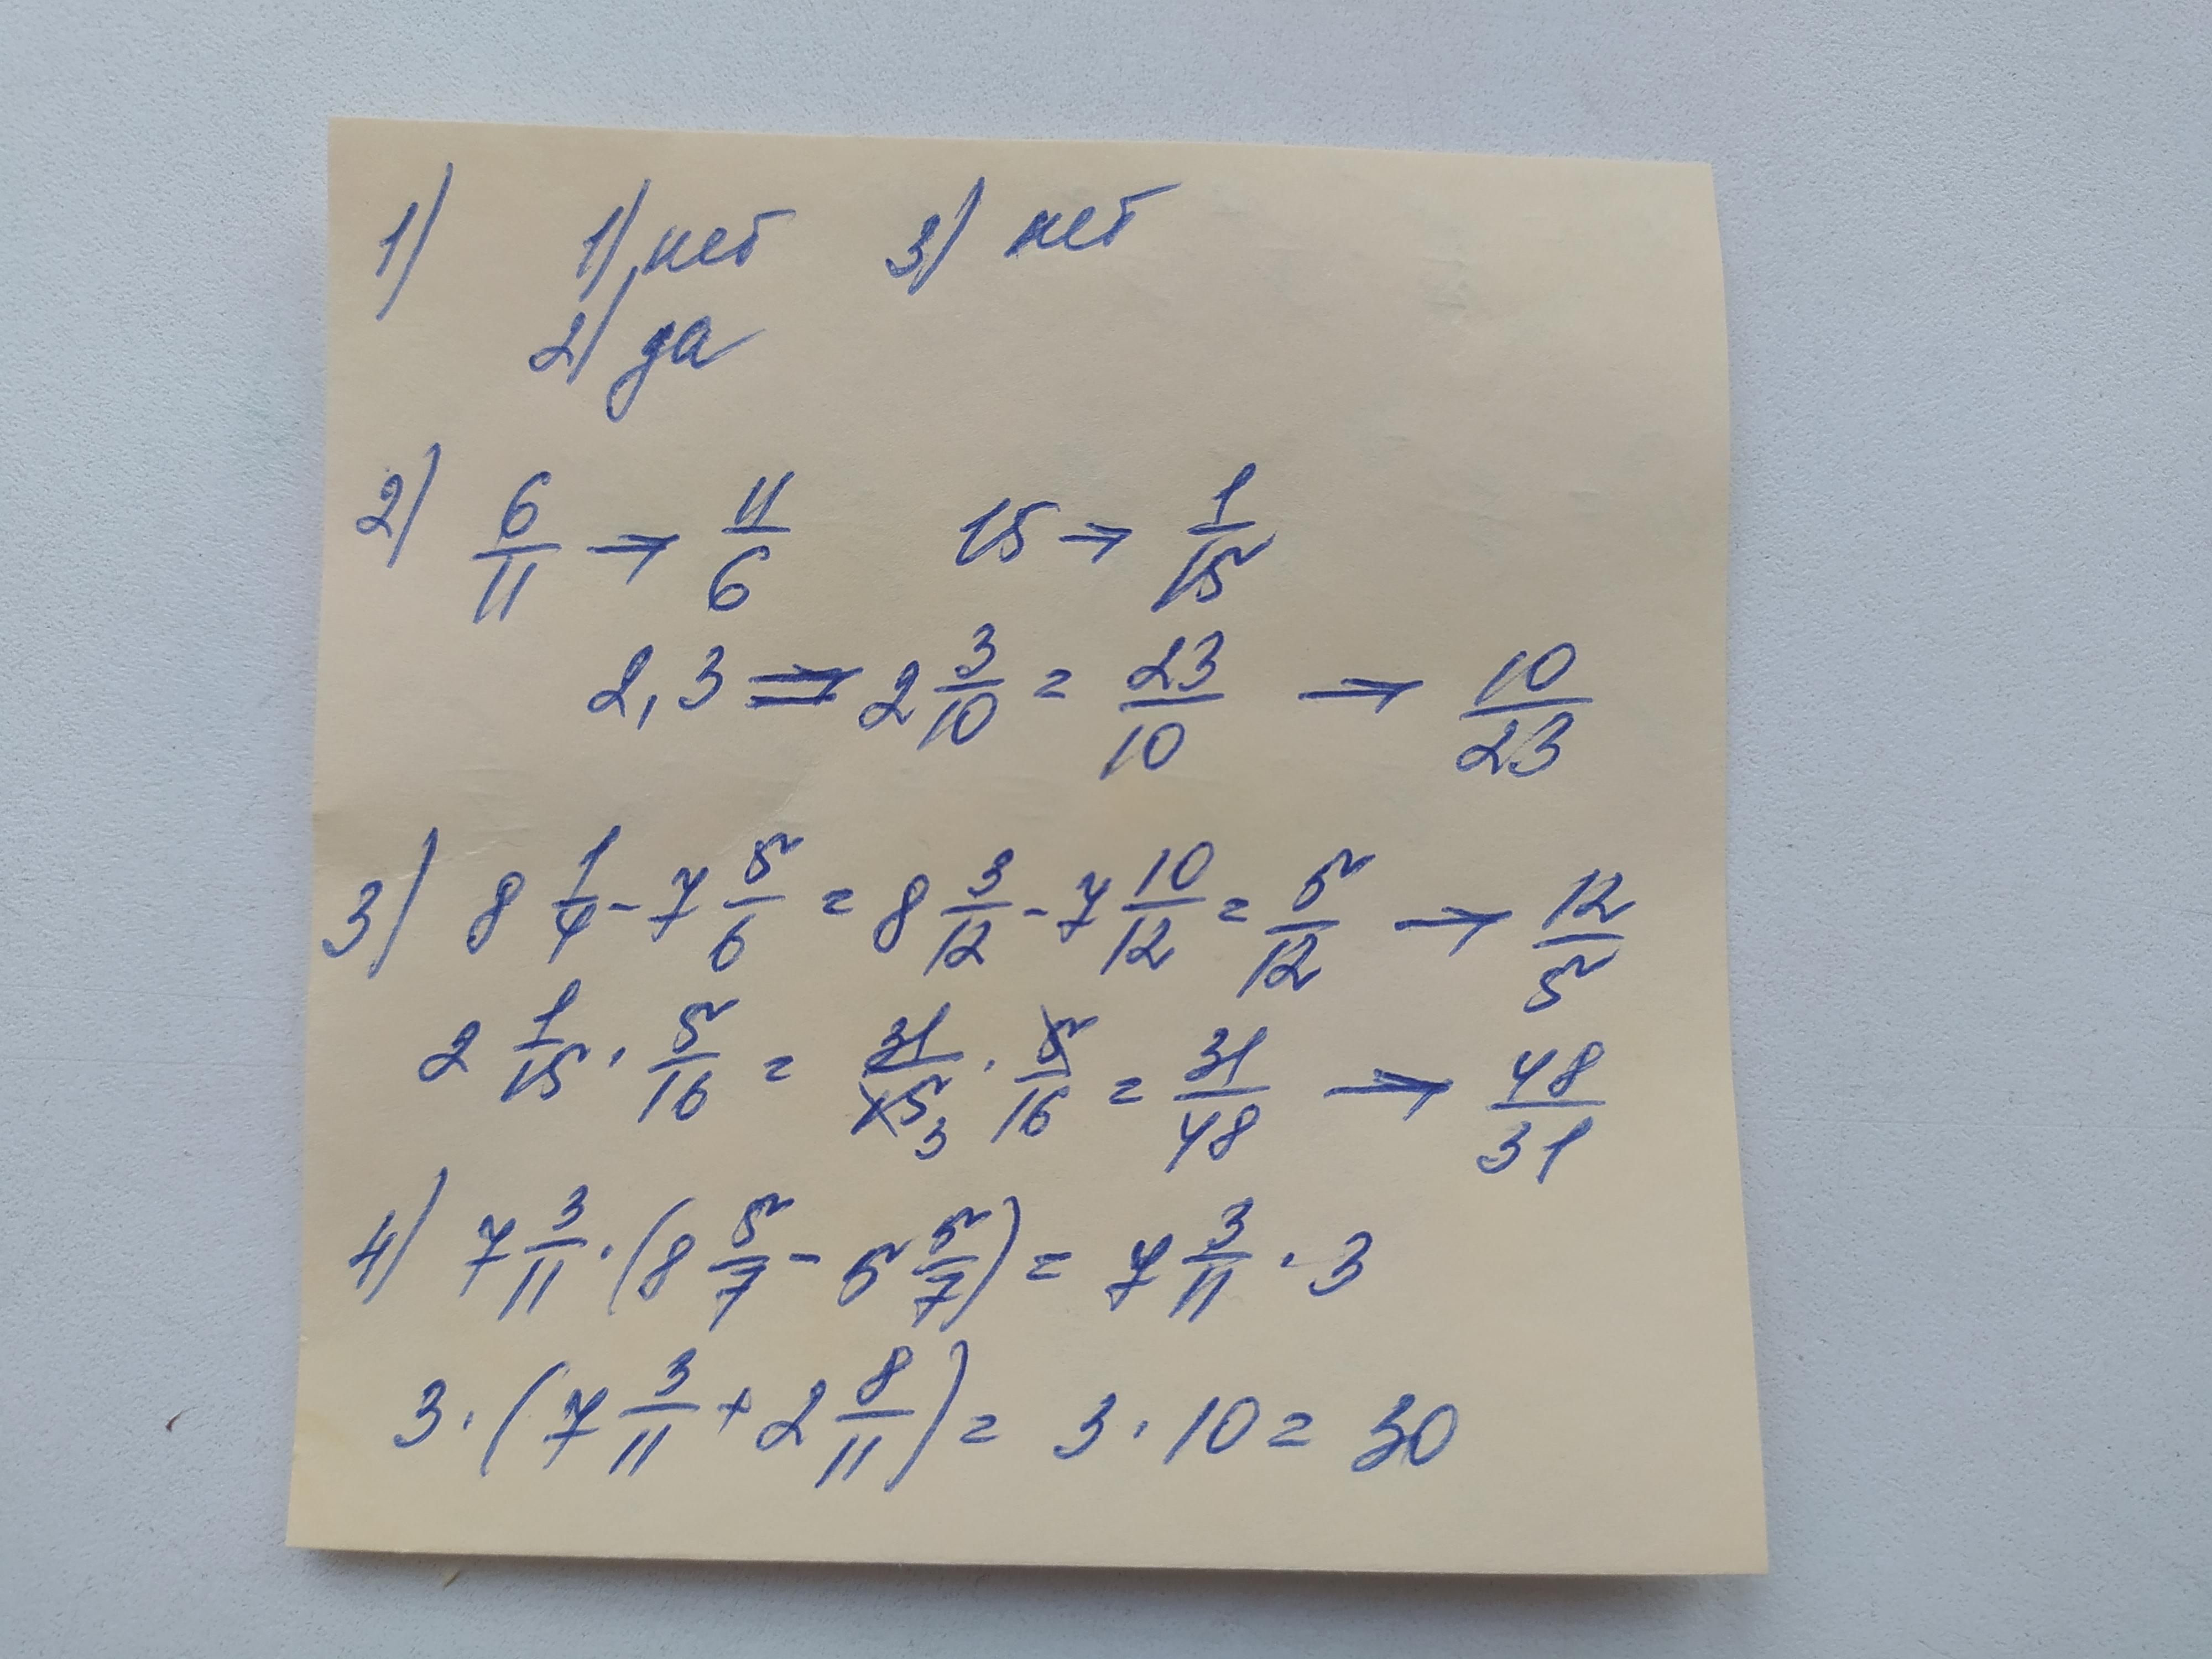 1) 1) нет 3) нет
2) да
2) 6/11 → 11/6 15 → 1/15
2,3 = 2 3/10 = 23/10 → 10/23
3) 8 1/4 - 7 5/6 = 8 3/12 - 7 10/12 = 5/12 → 12/5
2 1/15 · 5/16 = 31/15 3 · 5/16 = 31/48 → 48/31
4) 7 3/11 · (8 5/7 - 5 5/7) = 7 3/11 · 3
3 · (7 3/11 + 2 8/11) = 3 · 10 = 30